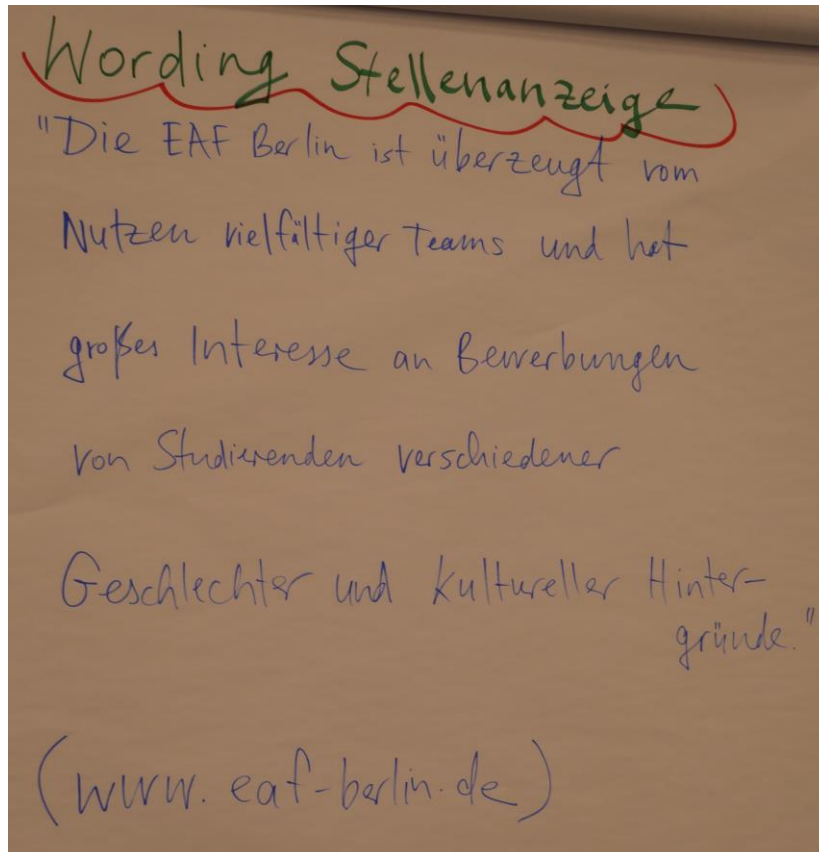 Wording Stellenanzeige
"Die EAF Berlin ist überzeugt vom
Nutzen vielfältiger Teams und hat
großes Interesse an Bewerbungen
von Studierenden verschiedener
Geschlechter und kultureller Hinter-
gründe."
(www.eaf-berlin.de)